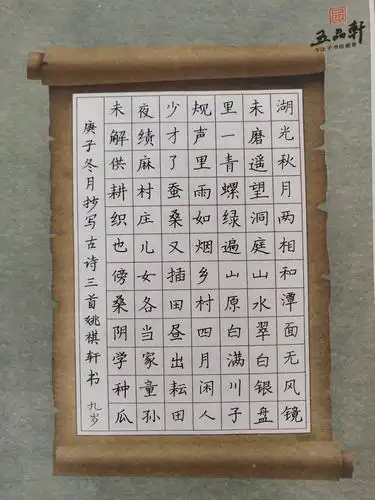 五品軒
湖光秋月两相和潭面无风镜
未磨遥望洞庭山水翠白银盘
里一青螺绿遍山原白满川子
规声里雨如烟乡村四月闲人
少才了蚕桑又插田昼出耘田
夜绩麻村庄儿女各当家童孙
未解供耕织也傍桑阴学种瓜
庚子冬月抄写古诗三首姚棋轩书 九岁